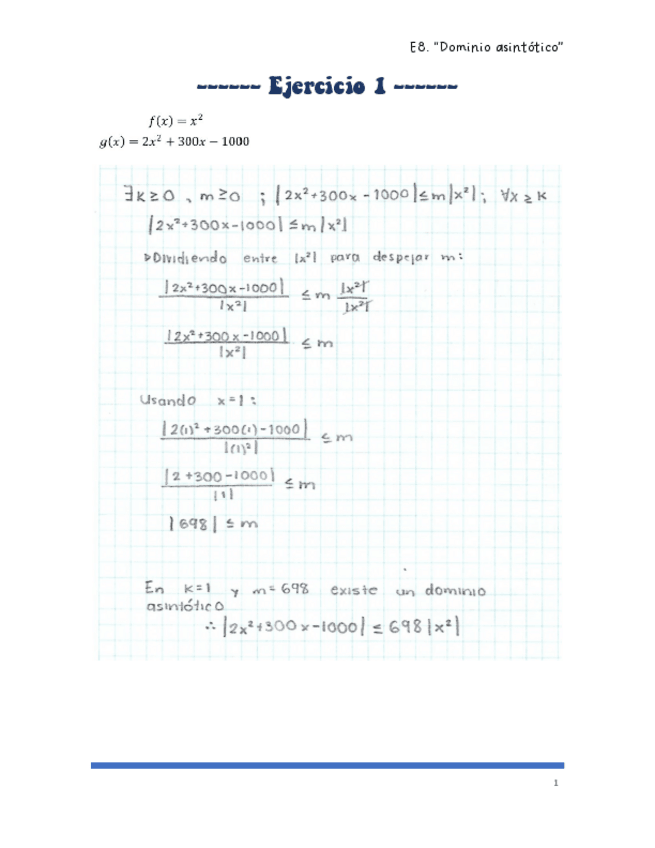 E8. "Dominio asintótico"
------ Ejercicio 1 ------
f(x) = x²
g(x) = 2x² + 300x − 1000
∃k≥0 , m≥0 ; |2x²+300x-1000|≤m|x²| ; ∀x≥k
|2x²+300x-1000| ≤m|x²|
▷Dividiendo entre |x²| para despejar m:
|2x²+300x-1000| / |x²| ≤ m |x²| / |x²|
|2x²+300x-1000| / |x²| ≤ m
Usando x=1:
|2(1)²+300(1)-1000| / |(1)²| ≤ m
|2+300-1000| / |1| ≤ m
|698| ≤ m
En k=1 y m=698 existe un dominio
asintótico
∴ |2x²+300x-1000| ≤ 698|x²|
1